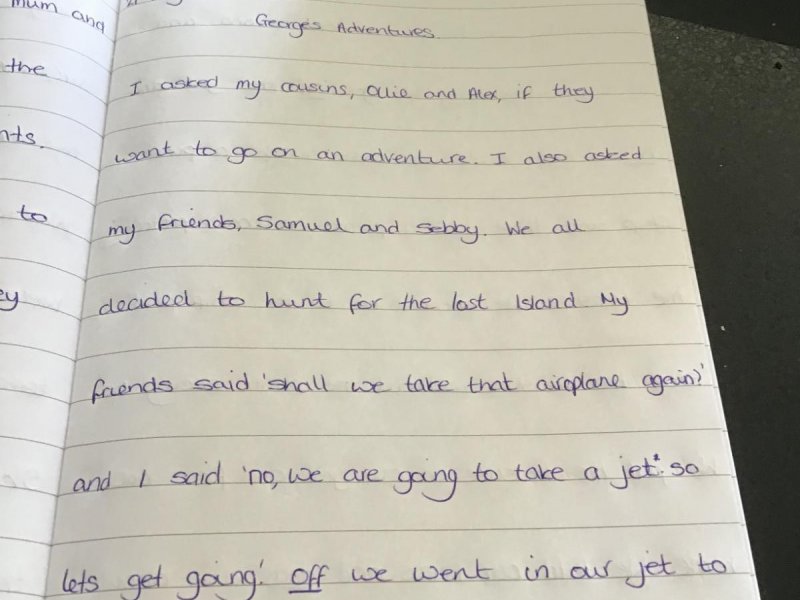 mum and
the
nts.
to
ey
Georges Adventures
I asked my cousins, Ollie and Alex, if they
want to go on an adventure. I also asked
my friends, Samuel and Sebby. We all
decided to hunt for the lost Island My
friends said 'shall we take that airoplane again?'
and I said 'no, we are going to take a jet*. so
lets get going.' Off we went in our jet to